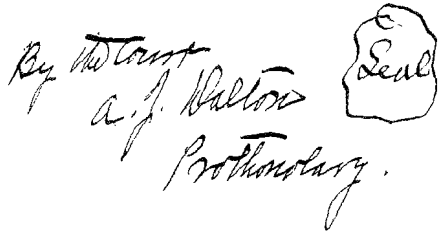 By the Court
A. J. Dalton
Prothonotary.
Seal